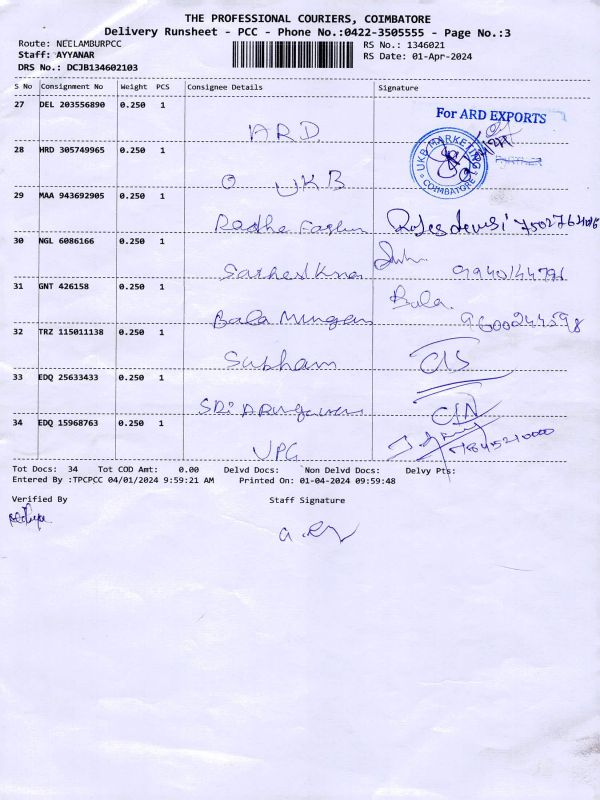 THE PROFESSIONAL COURIERS, COIMBATORE
Delivery Runsheet - PCC - Phone No.:0422-3505555 - Page No.:3
Route: NEELAMBURPCC
RS No.: 1346021
Staff: AYYANAR
RS Date: 01-Apr-2024
DRS No.: DCJB134602103
S No Consignment No Weight PCS Consignee Details Signature
27 DEL 203556890 0.250 1
For ARD EXPORTS
ARD
UKB MARKETING
COIMBATORE
PARTNER
28 HRD 305749965 0.250 1
UKB
29 MAA 943692905 0.250 1
Radhe
30 NGL 6086166 0.250 1
9940144791
31 GNT 426158 0.250 1
Bala
Bala Murugan 9600244598
32 TRZ 115011138 0.250 1
Subham
33 EDQ 25633433 0.250 1
34 EDQ 15968763 0.250 1
UPG 7845210000
Tot Docs: 34 Tot COD Amt: 0.00 Delvd Docs: Non Delvd Docs: Delvy Pts:
Entered By :TPCPCC 04/01/2024 9:59:21 AM Printed On: 01-04-2024 09:59:48
Verified By Staff Signature